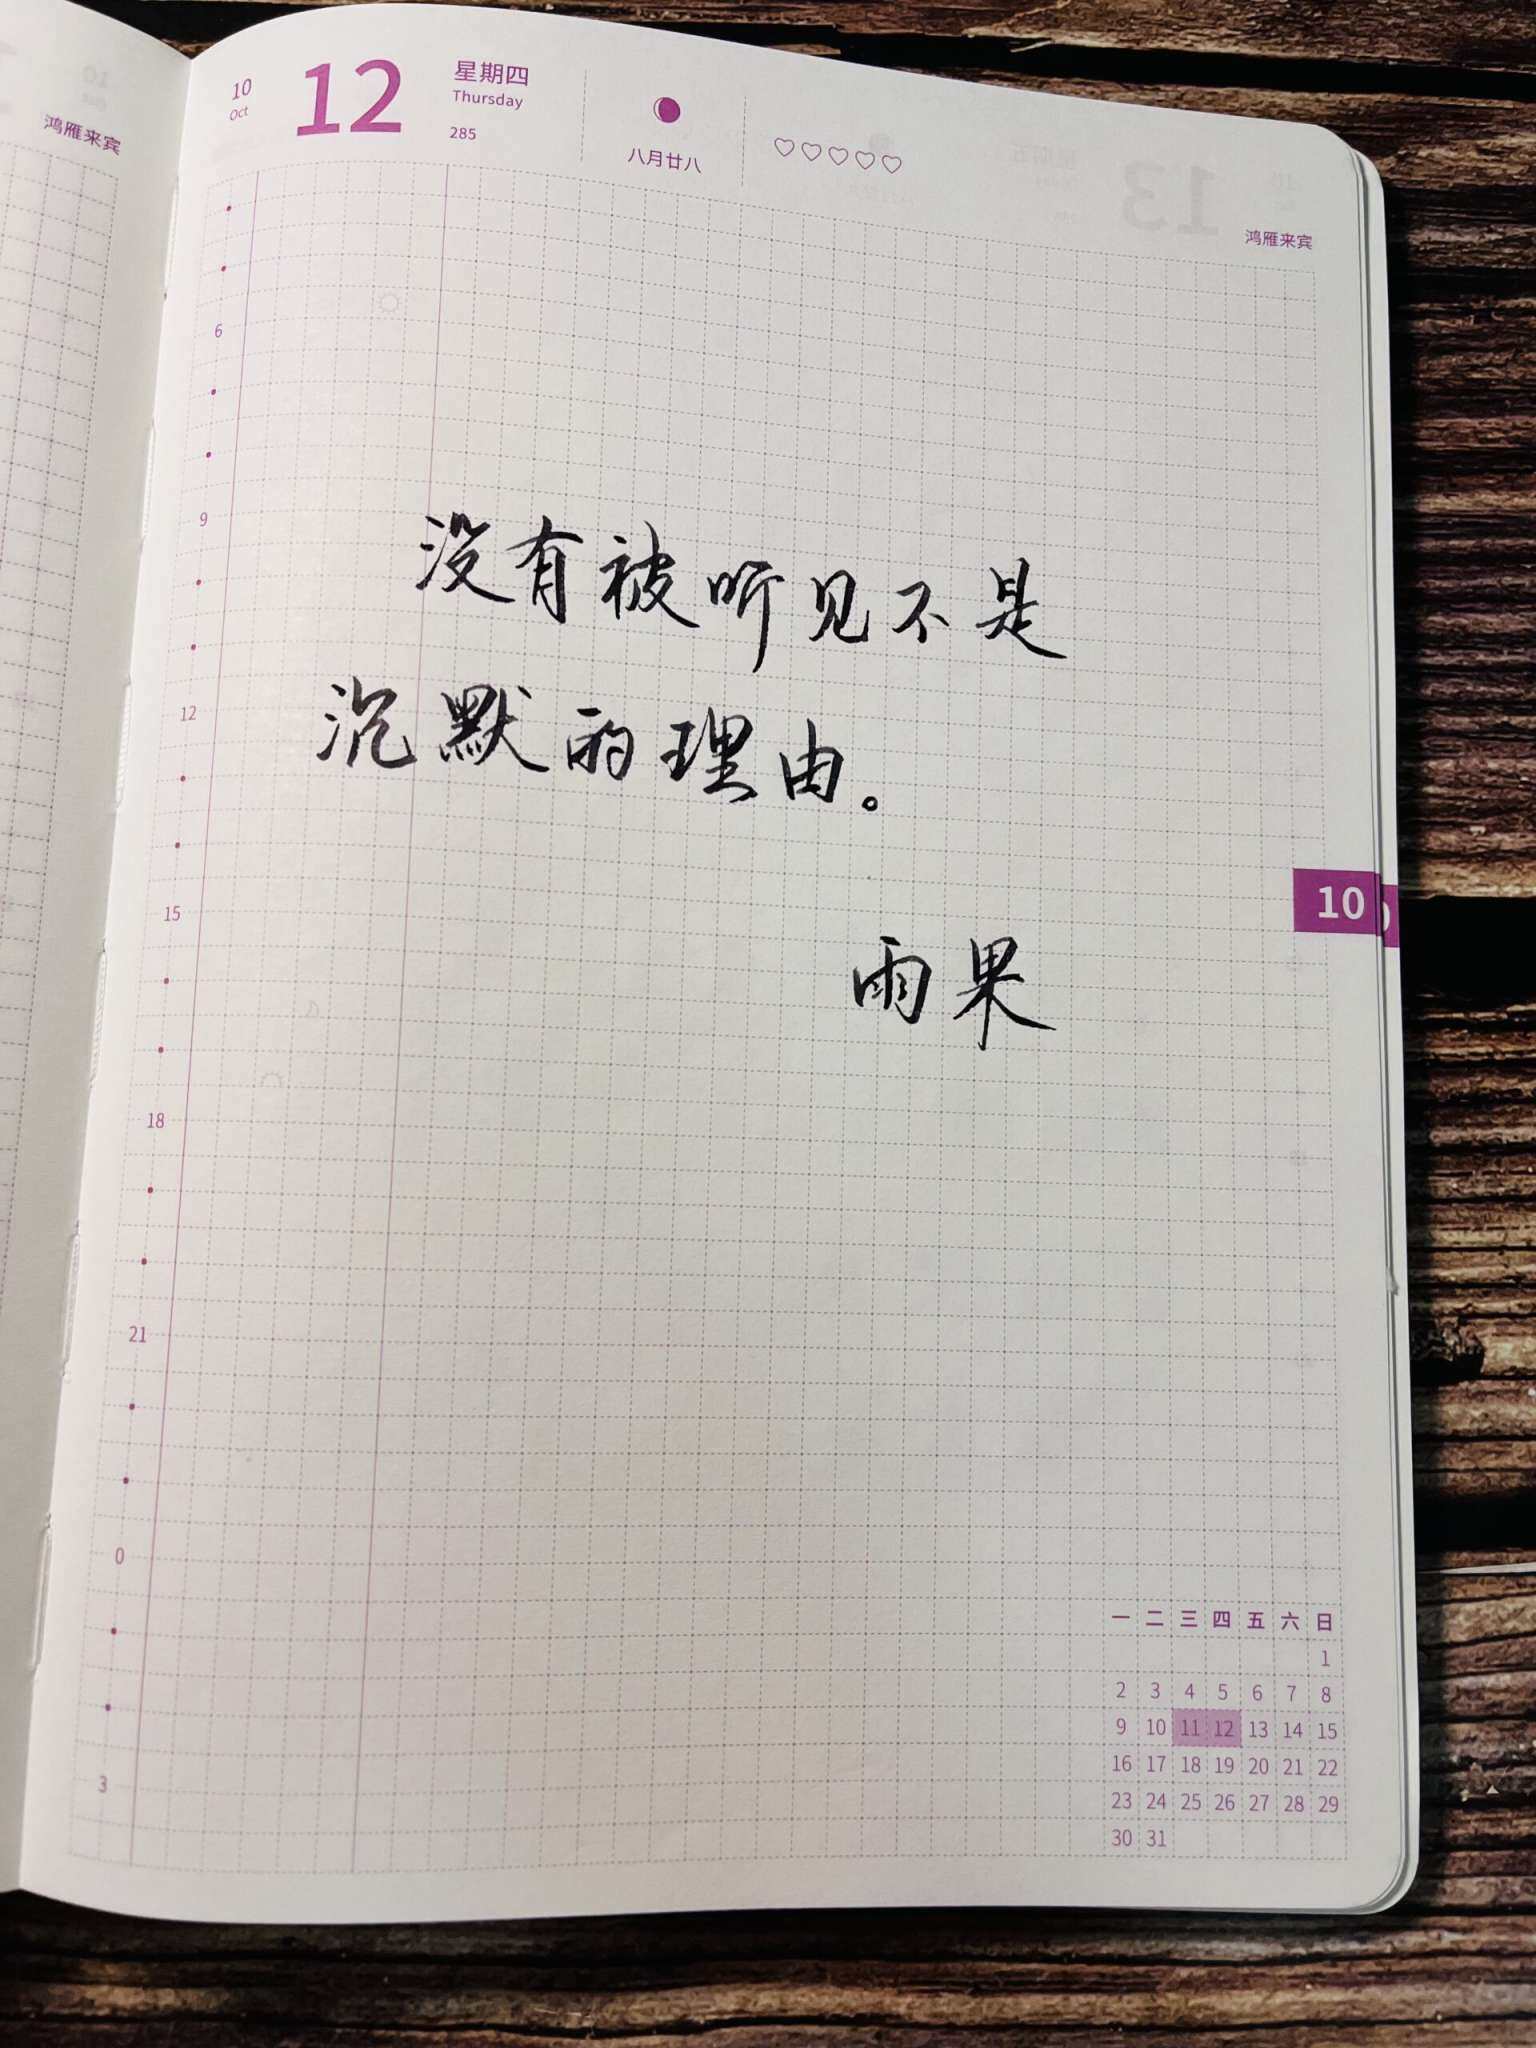 鸿雁来宾
10
Oct
12
星期四
Thursday
285
八月廿八
鸿雁来宾
6
9
没有被听见不是
12
沉默的理由。
15
10
雨果
18
21
0
3
一 二 三 四 五 六 日
1
2 3 4 5 6 7 8
9 10 11 12 13 14 15
16 17 18 19 20 21 22
23 24 25 26 27 28 29
30 31